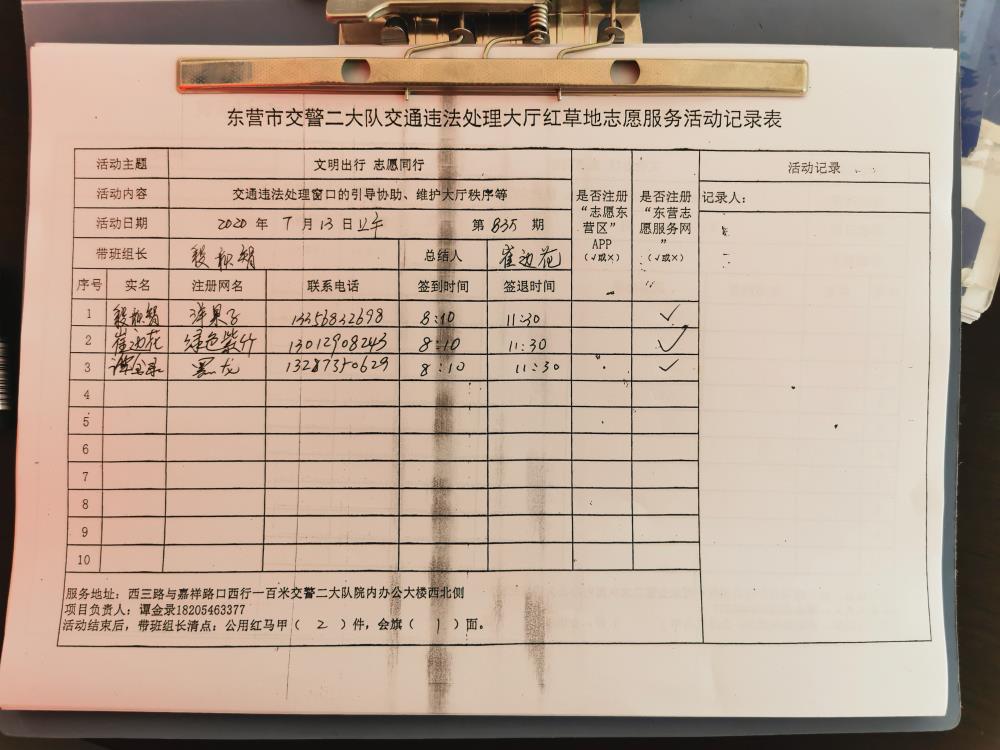 东营市交警二大队交通违法处理大厅红草地志愿服务活动记录表
活动主题 文明出行 志愿同行
活动内容 交通违法处理窗口的引导协助、维护大厅秩序等
活动日期 2020 年 7 月 13 日 上午 第 835 期
带班组长 总结人 崔边花
是否注册“志愿东营区”APP（√或×）
是否注册“东营志愿服务网”（√或×）
活动记录
记录人：
序号 实名 注册网名 联系电话 签到时间 签退时间
1 洋果子 13356832698 8:10 11:30 ✓
2 崔边花 绿色紫竹 13012908243 8:10 11:30 ✓
3 谭金录 黑龙 13287350629 8:10 11:30 ✓
4
5
6
7
8
9
10
服务地址：西三路与嘉祥路口西行一百米交警二大队院内办公大楼西北侧
项目负责人：谭金录18205463377
活动结束后，带班组长清点：公用红马甲（ 2 ）件，会旗（ 1 ）面。